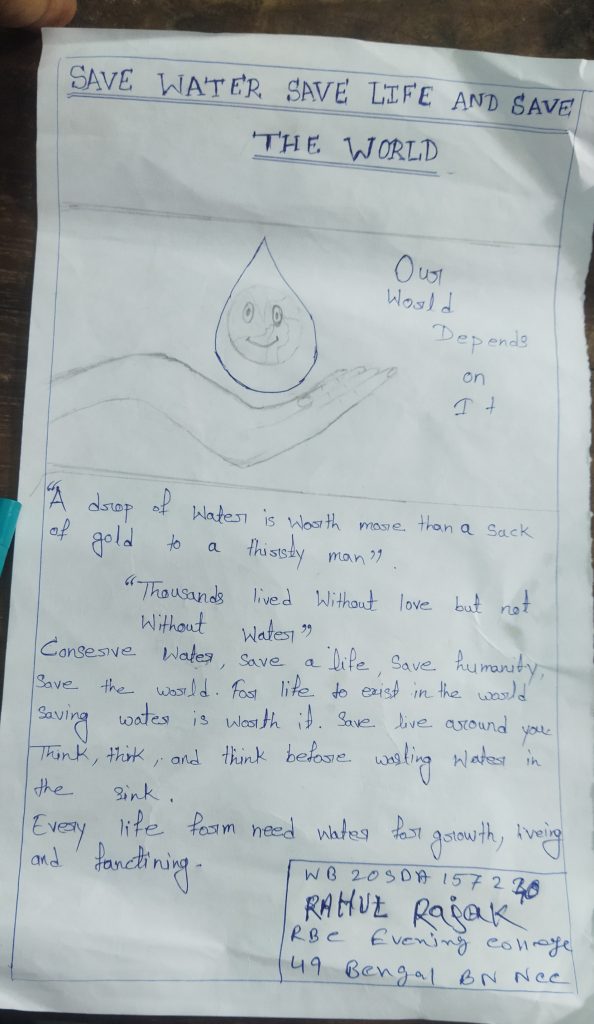 SAVE WATER SAVE LIFE AND SAVE
THE WORLD
Our
World
Depends
on
It
"A drop of Water is Worth more than a Sack
of gold to a thirsty man".
"Thousands lived Without love but not
Without Water"
Conserve Water, Save a life, Save humanity,
Save the world. For life to exist in the world
Saving water is worth it. Save live around you
Think, think, and think before wasting Water in
the sink.
Every life form need water for growth, liveing
and fanctining.
WB 20SDA 1572
RAHUL Rajak
RBC Evening college
49 Bengal BN NCC